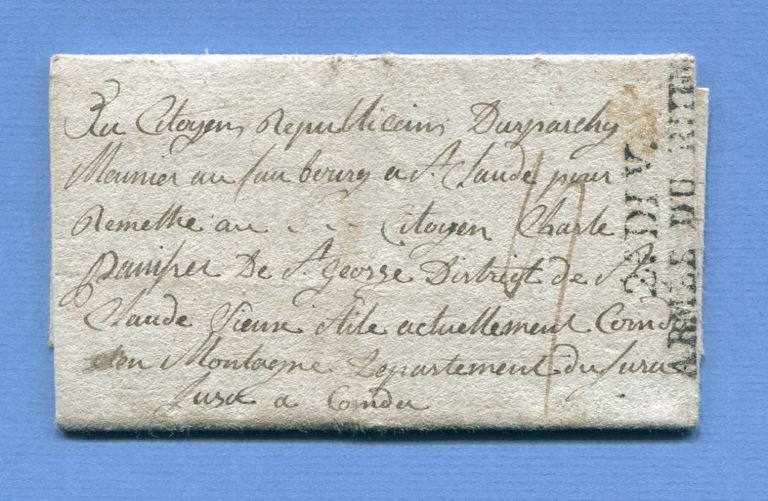 Au Citoyens Republicains Duparchy
Meunier au faubourg a St. Claude pour
Remettre au - - - Citoyen Charle
De St. george District de St.
Claude actuellement Conda
Montagne Departement du Jura
Jura a Condu
2e. DIV.
ARMÉE DU RHIN